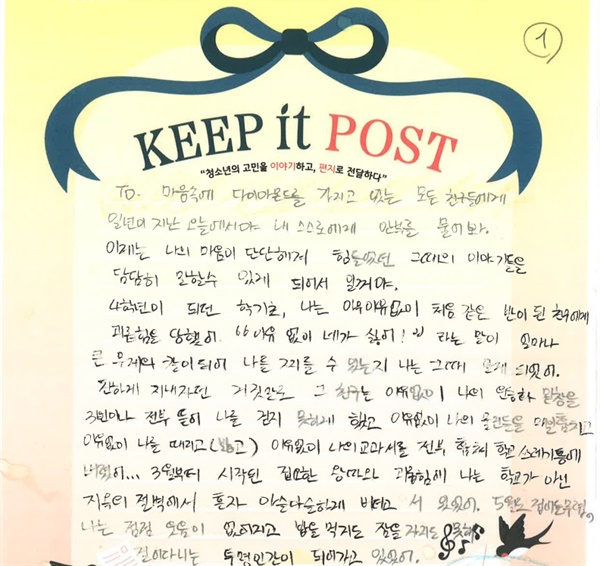 1
KEEP it POST
“청소년의 고민을 이야기하고, 편지로 전달하다”
TO. 마음속에 다이아몬드를 가지고 있는 모든 친구들에게
일년이 지난 오늘에서야 내 스스로에게 안부를 물어봐.
이제는 나의 마음이 단단해져 힘들었던 그때의 이야기들을
담담히 말할수 있게 되어서 일꺼야.
4학년이 되던 학기초, 나는 이유없이 처음 같은 반이 된 친구에게
괴롭힘을 당했어. "이유 없이 네가 싫어!" 라는 말이 얼마나
큰 무게와 칼이되어 나를 찌를 수 있는지 나는 그때 알게 되었어.
친하게 지내자던 거짓말로 그 친구는 이유없이 나의 운동화 밑창을
3번이나 전부 뜯어 나를 걷지 못하게 했고 이유없이 나의 물건들을
이유없이 나를 때리고 이유없이 나의 교과서를 전부 학교 쓰레기통에
3월부터 시작된 집요한 왕따와 괴롭힘에 나는 학교가 아닌
지옥의 절벽에서 혼자 아슬아슬하게 버티고 서 있었어. 5월
나는 점점 웃음이 없어지고 밥을 먹지도 잠을 자지도 못해
걸어다니는 투명인간이 되어가고 있었어.